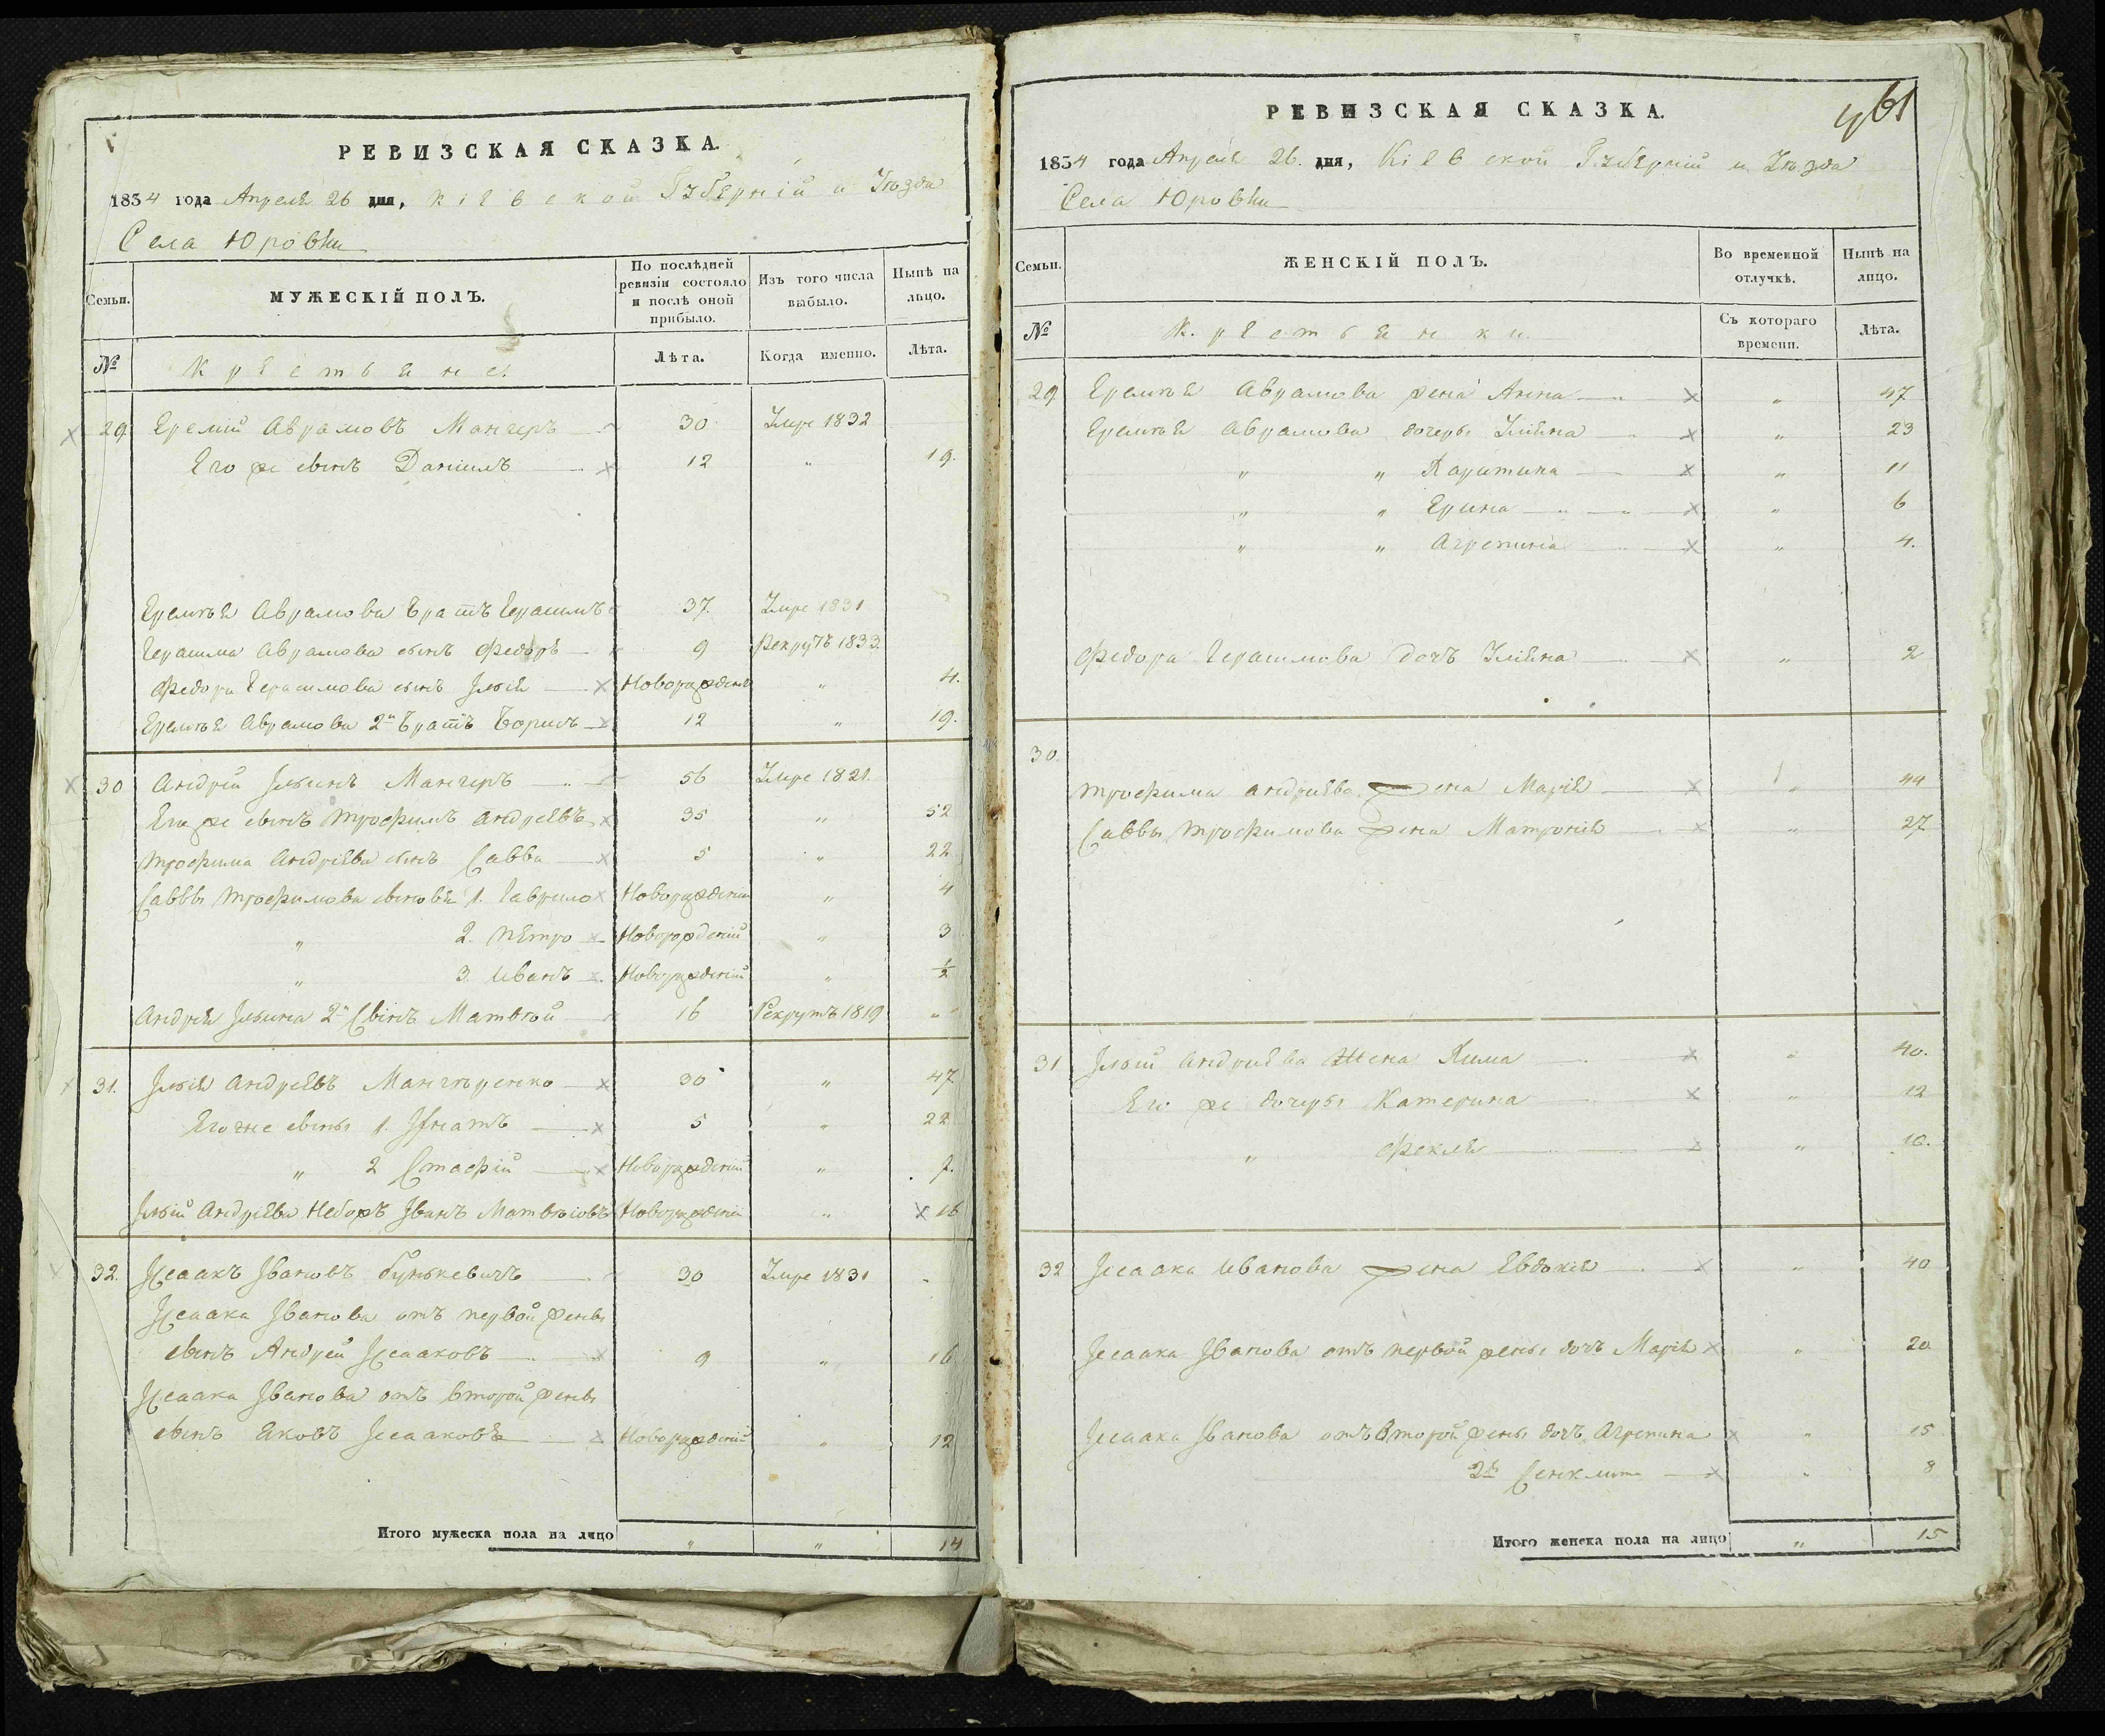 РЕВИЗСКАЯ СКАЗКА.
1834 года Апреля 26 дня, Кіевской Губерніи и Уезда
Села Юровки
Семьи.
МУЖЕСКІЙ ПОЛЪ.
По послѣдней ревизіи состояло и послѣ оной прибыло.
Изъ того числа выбыло.
Нынѣ на лицо.
№
Крестьяне.
Лѣта.
Когда именно.
Лѣта.
29 Еремій Аврамовъ Манчеръ 30 Умре 1832
Его же сынъ Даніилъ 12 „ 19.
Еремѣя Аврамова братъ Герасимъ 37. Умре 1831
Герасима Аврамова сынъ Федоръ 9 Рекрутъ 1833.
Федора Герасимова сынъ Илья Новорожденъ „ 4.
Еремѣя Аврамова 2й братъ Борисъ 12 „ 19.
30 Андрей Ильинъ Манчеръ 56 Умре 1821.
Его же сынъ Трофимъ Андреевъ 35 „ 52
Трофима Андріева сынъ Савва 5 „ 22
Саввы Трофимова сыновья 1. Гаврило Новорожденій „ 4
„ 2. Петро Новорожденій „ 3
„ 3. Иванъ Новорожденій „ ½
Андрея Ильина 2й Сынъ Матвѣй 16 Рекрутъ 1819 „
31. Илья Андреевъ Манчѣренко 30 „ 47
Его же сыны 1. Игнатъ 5 „ 22
„ 2 Стафій Новорожденій „ 7.
Ильи Андріева Небожъ Иванъ Матвѣіовъ Новорожденій „ 16
32. Исаакъ Ивановъ Бунькевичъ 30 Умре 1831
Исаака Иванова отъ первой жены
сынъ Андрей Исааковъ 9 „ 16
Исаака Иванова отъ второй жены
сынъ Яковъ Исааковъ Новорожденій „ 12
Итого мужеска пола на лицо „ „ 14
61
РЕВИЗСКАЯ СКАЗКА.
1834 года Апреля 26. дня, Кіевской Губерніи и Уезда
Села Юровки
Семьи.
ЖЕНСКІЙ ПОЛЪ.
Во временной отлучкѣ.
Нынѣ на лицо.
№
Крестьянки.
Съ котораго времени.
Лѣта.
29 Еремѣя Аврамова жена Анна „ 47
Еремѣя Аврамова дочеры Уліяна „ 23
„ „ Харитина „ 11
„ „ Ерина „ 6
„ „ Агрепина „ 4.
Федора Герасимова дочъ Уліяна „ 2
30.
Трофима Андріева Жена Марія „ 44
Саввы Трофимова Жена Матронія „ 27
31 Ильи Андріева Жена Хима „ 40.
Его же дочеры Катерина „ 12
„ Фекля „ 10.
32 Исаака Иванова жена Евдокія „ 40
Исаака Иванова отъ первой жены дочъ Марія „ 20
Исаака Иванова отъ второй жены дочъ Агрепина „ 15
2я „ 8
Итого женска пола на лицо „ 15